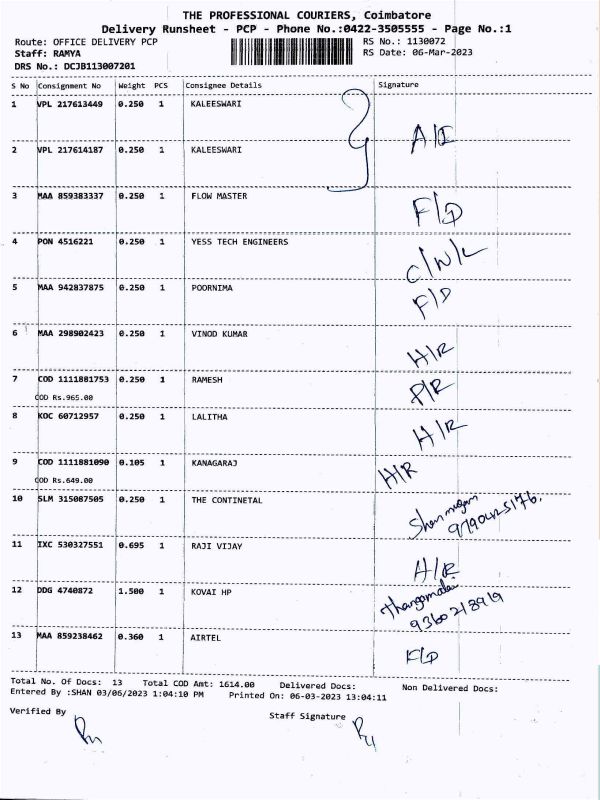 THE PROFESSIONAL COURIERS, Coimbatore
Delivery Runsheet - PCP - Phone No.:0422-3505555 - Page No.:1
Route: OFFICE DELIVERY PCP RS No.: 1130072
Staff: RAMYA RS Date: 06-Mar-2023
DRS No.: DCJB113007201
S No Consignment No Weight PCS Consignee Details Signature
1 VPL 217613449 0.250 1 KALEESWARI
A/I
2 VPL 217614187 0.250 1 KALEESWARI
3 MAA 859383337 0.250 1 FLOW MASTER
F/D
4 PON 4516221 0.250 1 YESS TECH ENGINEERS
C/N/L
5 MAA 942837875 0.250 1 POORNIMA
F/D
6 MAA 298902423 0.250 1 VINOD KUMAR
H/R
7 COD 1111881753 0.250 1 RAMESH
P/R
COD Rs.965.00
8 KOC 60712957 0.250 1 LALITHA
H/R
9 COD 1111881090 0.105 1 KANAGARAJ
H/R
COD Rs.649.00
10 SLM 315087505 0.250 1 THE CONTINETAL
Shanmugam
9790425176.
11 IXC 530327551 0.695 1 RAJI VIJAY
H/R
12 DDG 4740872 1.500 1 KOVAI HP
Thangamalai
9360218919
13 MAA 859238462 0.360 1 AIRTEL
F/D
Total No. Of Docs: 13 Total COD Amt: 1614.00 Delivered Docs: Non Delivered Docs:
Entered By :SHAN 03/06/2023 1:04:10 PM Printed On: 06-03-2023 13:04:11
Verified By Staff Signature